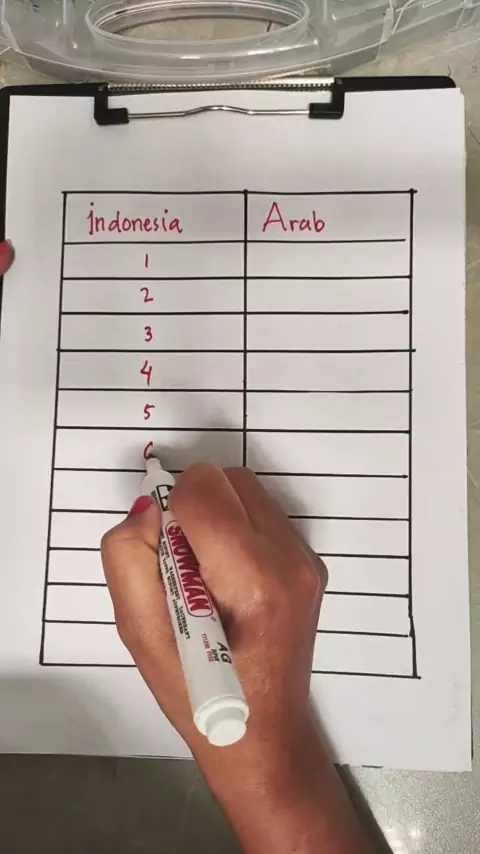 indonesia Arab
1
2
3
4
5
6
SNOWMAN
AG